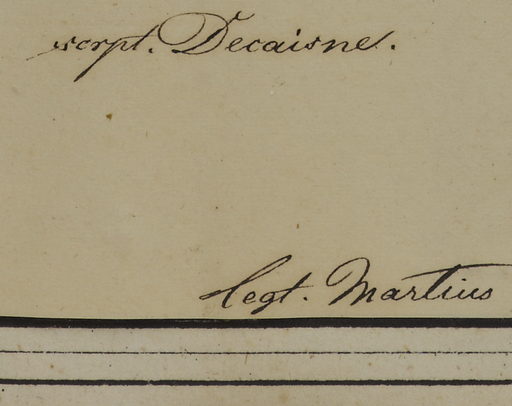 scrpt. Decaisne.
legt. Martius